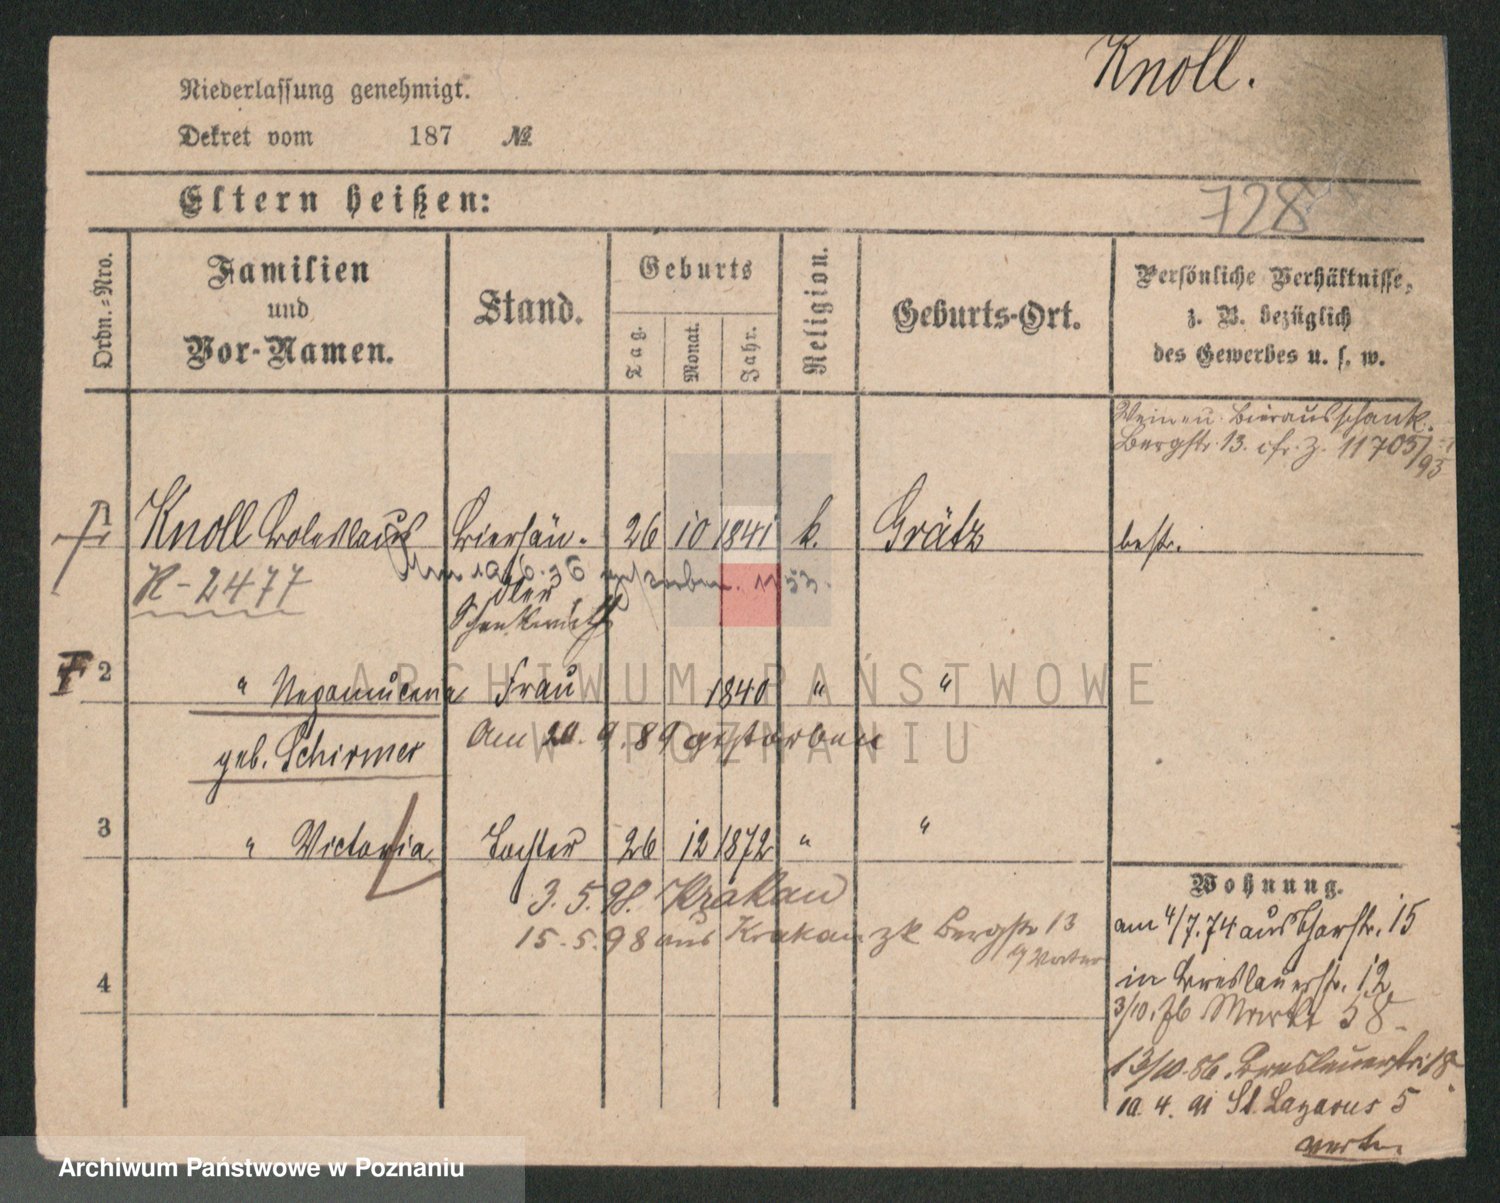 Knoll.
Niederlassung genehmigt.
Dekret vom 187 №
728
Eltern heißen:
Ordn.-Nro.
Familien
und
Vor-Namen.
Stand.
Geburts
Tag.
Monat.
Jahr.
Religion.
Geburts-Ort.
Persönliche Verhältnisse,
z. B. bezüglich
des Gewerbes u. s. w.
Wein u. Bierausschank.
Bergstr. 13. cfr. Z. 11705/95
1 Knoll Boleslaus Biersän- 26 10 1841 k. Grätz bestr.
R-2477
gestorben. 1153.
Schankwirth
2 " Nepomucena Frau 1840 " "
geb. Schirmer Am 20.9.89 gestorben
3 " Victoria Tochter 26 12 1872 " "
3.5.98. Krakau
15.5.98 aus Krakau zk Bergstr 13
Vater
4
Wohnung.
am 4/7.74 aus Thorstr. 15
in Breslauerstr. 12
3/10.76 Markt 58
13/10.86. Breslauerstr. 18
10.4.91 St. Lazarus 5
ARCHIWUM PAŃSTWOWE
W POZNANIU
Archiwum Państwowe w Poznaniu